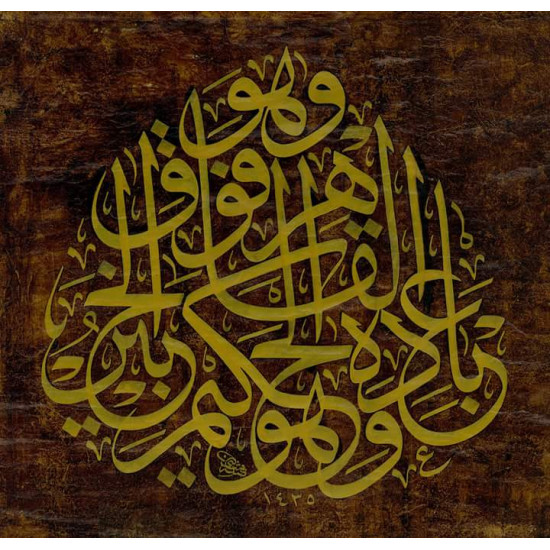 وهو القاهر فوق عباده وهو الحكيم الخبير
١٤٣٥